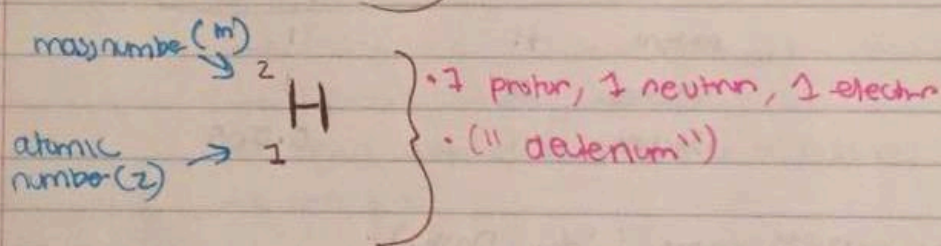 mass number (m)
2
H
atomic
number (z)
1
• 1 proton, 1 neutron, 1 electron
• ("deterium")